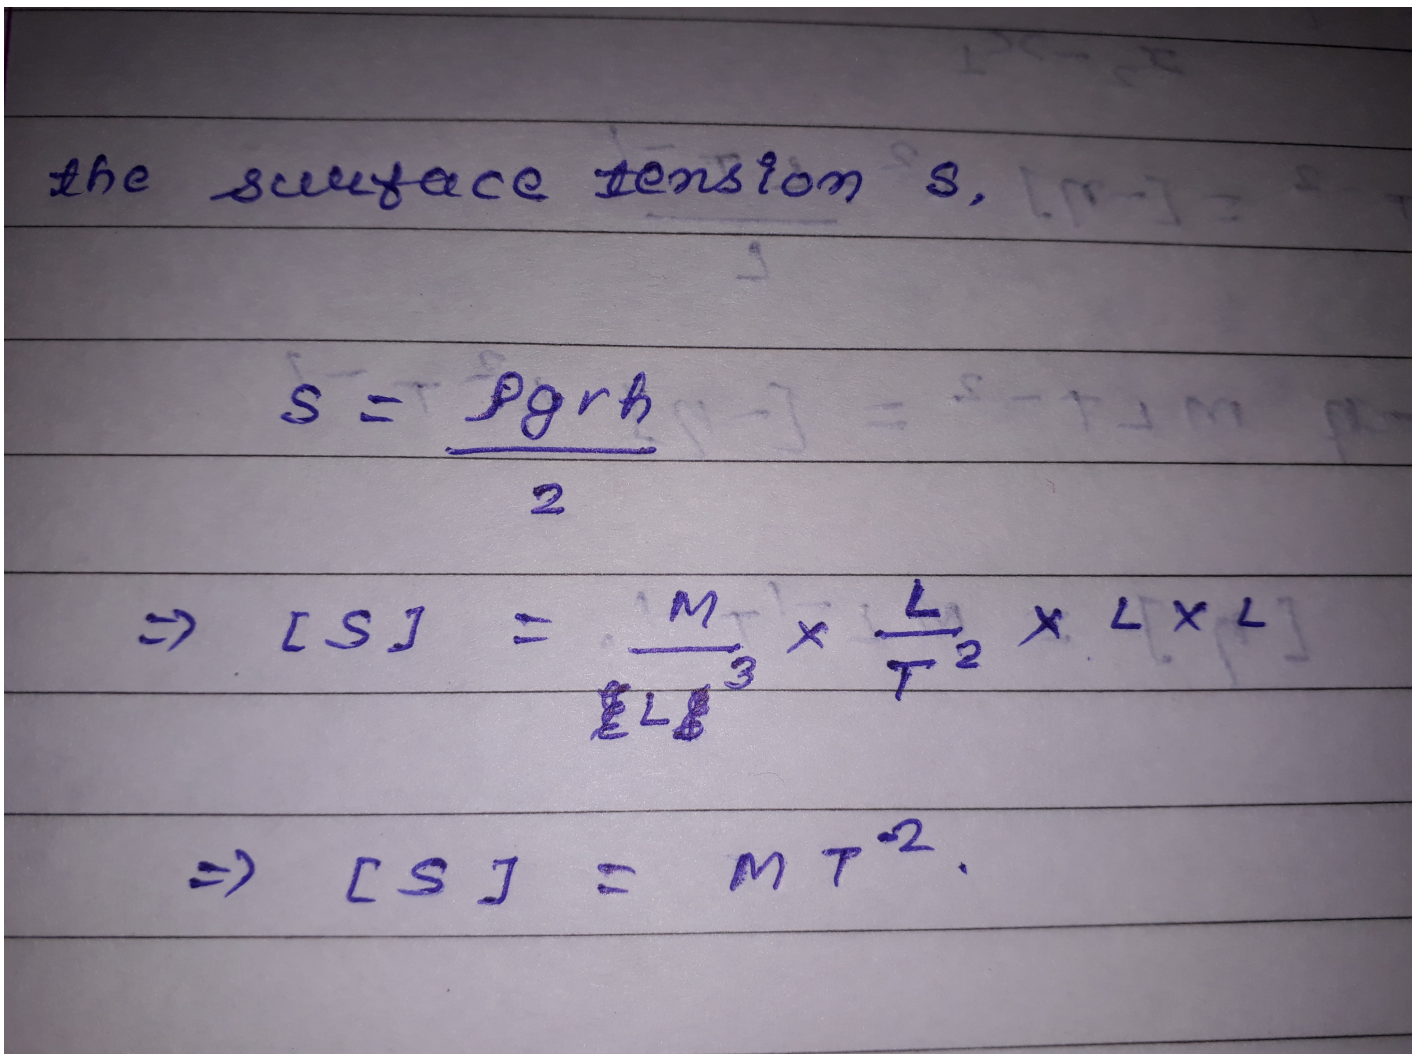 the surface tension s,
S = ρgrh
2
=> [S] = M/L³ × L/T² × L × L
=> [S] = MT⁻².